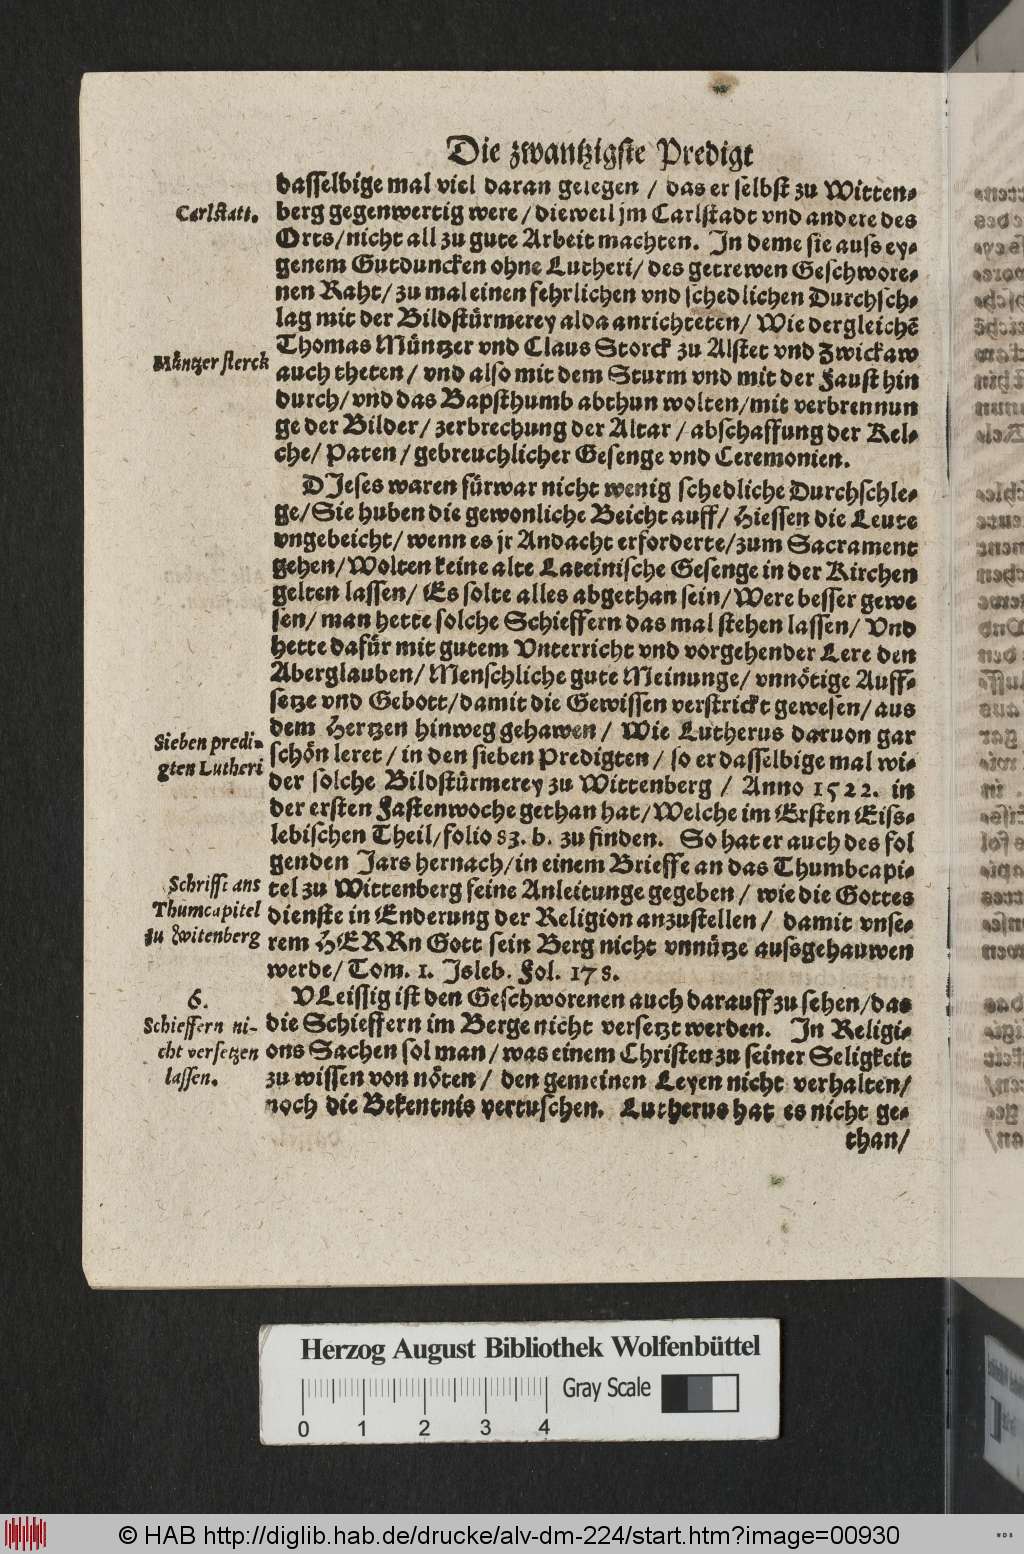 Die zwantzigste Predigt
dasselbige mal viel daran gelegen / das er selbst zu Witten⸗
Carlstatt.
berg gegenwertig were / dieweil jm Carlstadt vnd andere des
Orts/nicht all zu gute Arbeit machten. In deme sie auss ey⸗
genem Gutduncken ohne Lutheri/ des getrewen Geschwore⸗
nen Raht/ zu mal einen fehrlichen vnd schedlichen Durchsch⸗
lag mit der Bildstürmerey alda anrichteten/ Wie dergleichē
Müntzer sterck
Thomas Müntzer vnd Claus Storck zu Alstet vnd Zwickaw
auch theten / vnd also mit dem Sturm vnd mit der Faust hin
durch/ vnd das Bapsthumb abthun wolten/mit verbrennun
ge der Bilder/ zerbrechung der Altar / abschaffung der Kel⸗
che/ Paten / gebreuchlicher Gesenge vnd Ceremonien.
DIeses waren fürwar nicht wenig schedliche Durchschle⸗
ge/ Sie huben die gewonliche Beicht auff/ Hiessen die Leute
vngebeicht/ wenn es jr Andacht erforderte/zum Sacrament
gehen/ Wolten keine alte Lateinische Gesenge in der Kirchen
gelten lassen/ Es solte alles abgethan sein/ Were besser gewe
sen/ man hette solche Schieffern das mal stehen lassen/ Vnd
hette dafür mit gutem Vnterricht vnd vorgehender Lere den
Aberglauben/ Menschliche gute Meinunge/ vnnötige Auff⸗
setze vnd Gebott/damit die Gewissen verstrickt gewesen/ aus
dem Hertzen hinweg gehawen / Wie Lutherus daruon gar
Sieben predi⸗
gten Lutheri
schön leret / in den sieben Predigten / so er dasselbige mal wi⸗
der solche Bildstürmerey zu Wittenberg / Anno 1522. in
der ersten Fastenwoche gethan hat/ Welche im Ersten Eiss⸗
lebischen Theil/ folio 83. b. zu finden. So hat er auch des fol
genden Jars hernach/ in einem Brieffe an das Thumbcapi⸗
Schrifft ans
Thumcapitel
zu Witenberg
tel zu Wittenberg seine Anleitunge gegeben / wie die Gottes
dienste in Enderung der Religion anzustellen / damit vnse⸗
rem HERRn Gott sein Berg nicht vnnütze aussgehauwen
werde/ Tom. 1. Isleb. Fol. 178.
6.
Schieffern ni-
cht versetzen
lassen.
VLeissig ist den Geschworenen auch darauff zu sehen/das
die Schieffern im Berge nicht versetzt werden. In Religi⸗
ons Sachen sol man / was einem Christen zu seiner Seligkeit
zu wissen von nöten / den gemeinen Leyen nicht verhalten/
noch die Bekentnis vertuschen. Lutherus hat es nicht ge⸗
than/
Herzog August Bibliothek Wolfenbüttel
Gray Scale
0 1 2 3 4
© HAB http://diglib.hab.de/drucke/alv-dm-224/start.htm?image=00930